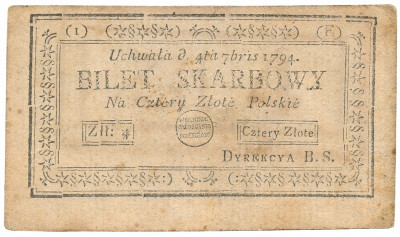 (1) (F)
Uchwała d. 4ta 7bris 1794.
BILET SKARBOWY
Na Cztery Złote Polskie
Złł: 4 Cztery Zlote
DYREKCYA B. S.